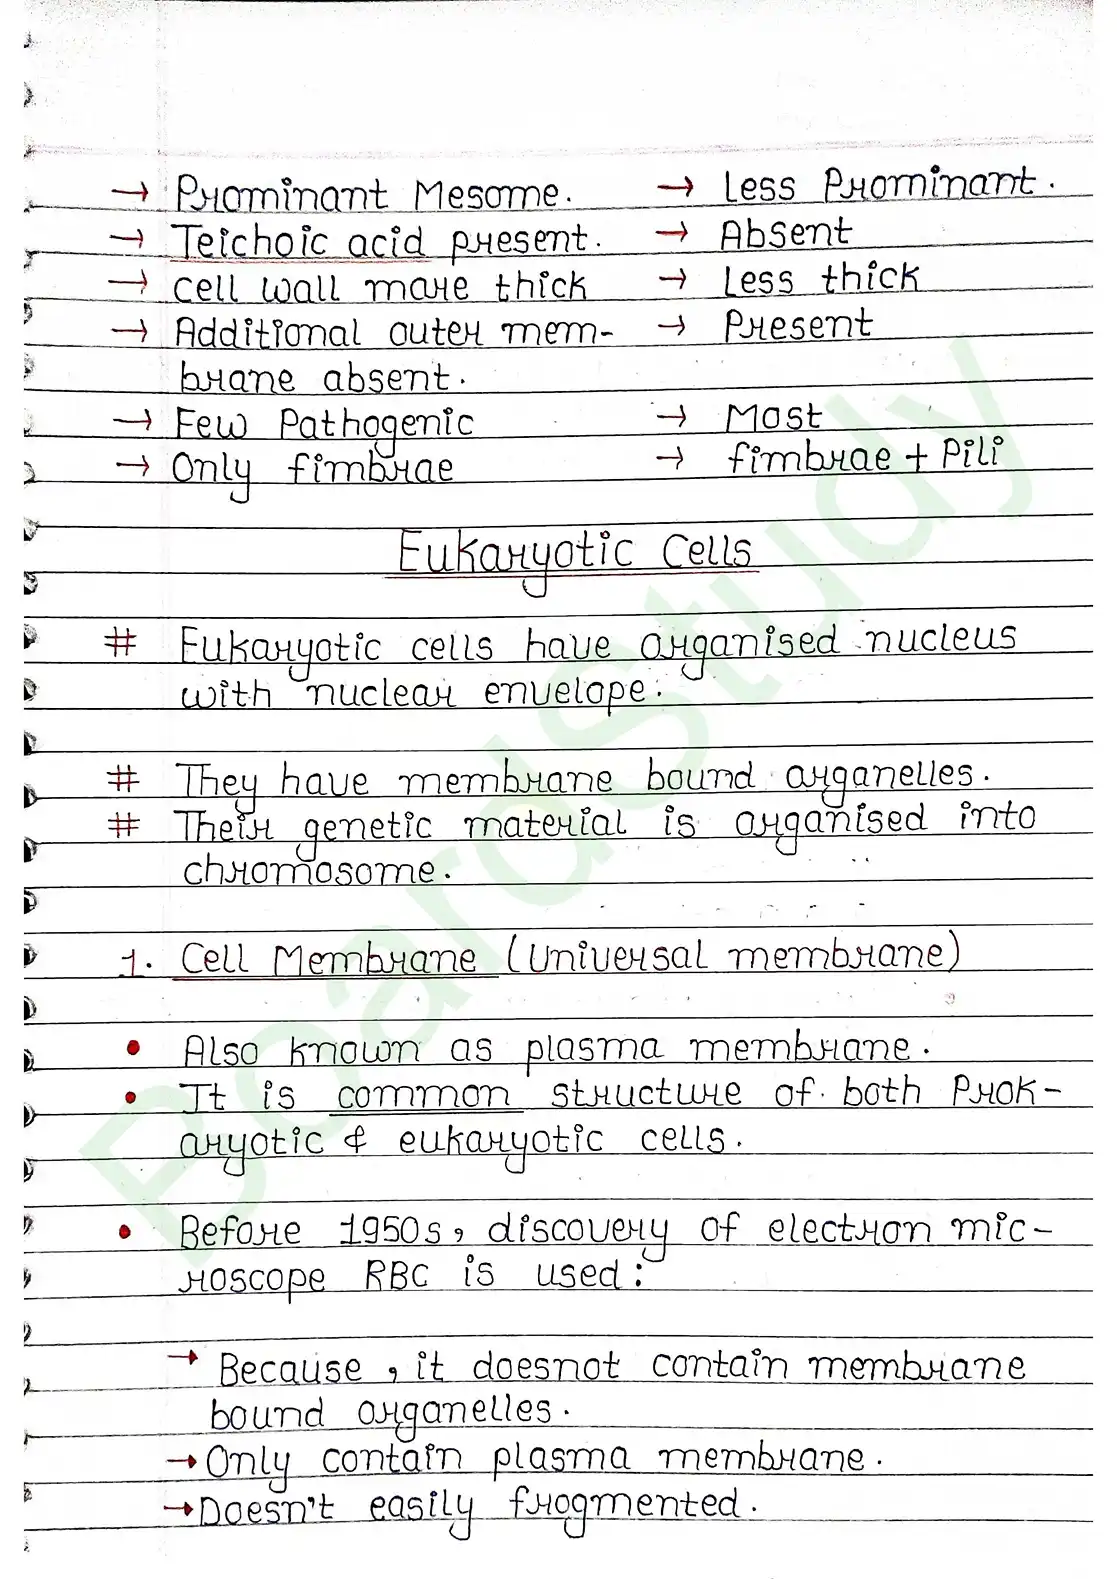 → Prominant Mesome. → Less Prominant.
→ Teichoic acid present. → Absent
→ cell wall more thick → Less thick
→ Additional outer mem- → Present
brane absent.
→ Few Pathogenic → Most
→ Only fimbrae → fimbrae + Pili
Eukaryotic Cells
# Eukaryotic cells have organised nucleus
with nuclear envelope.
# They have membrane bound organelles.
# Their genetic material is organised into
chromosome.
1. Cell Membrane (Universal membrane)
• Also known as plasma membrane.
• It is common structure of both Prok-
aryotic & eukaryotic cells.
• Before 1950s, discovery of electron mic-
roscope RBC is used:
→ Because, it doesnot contain membrane
bound organelles.
→ Only contain plasma membrane.
→ Doesn't easily frogmented.
BoardStudy